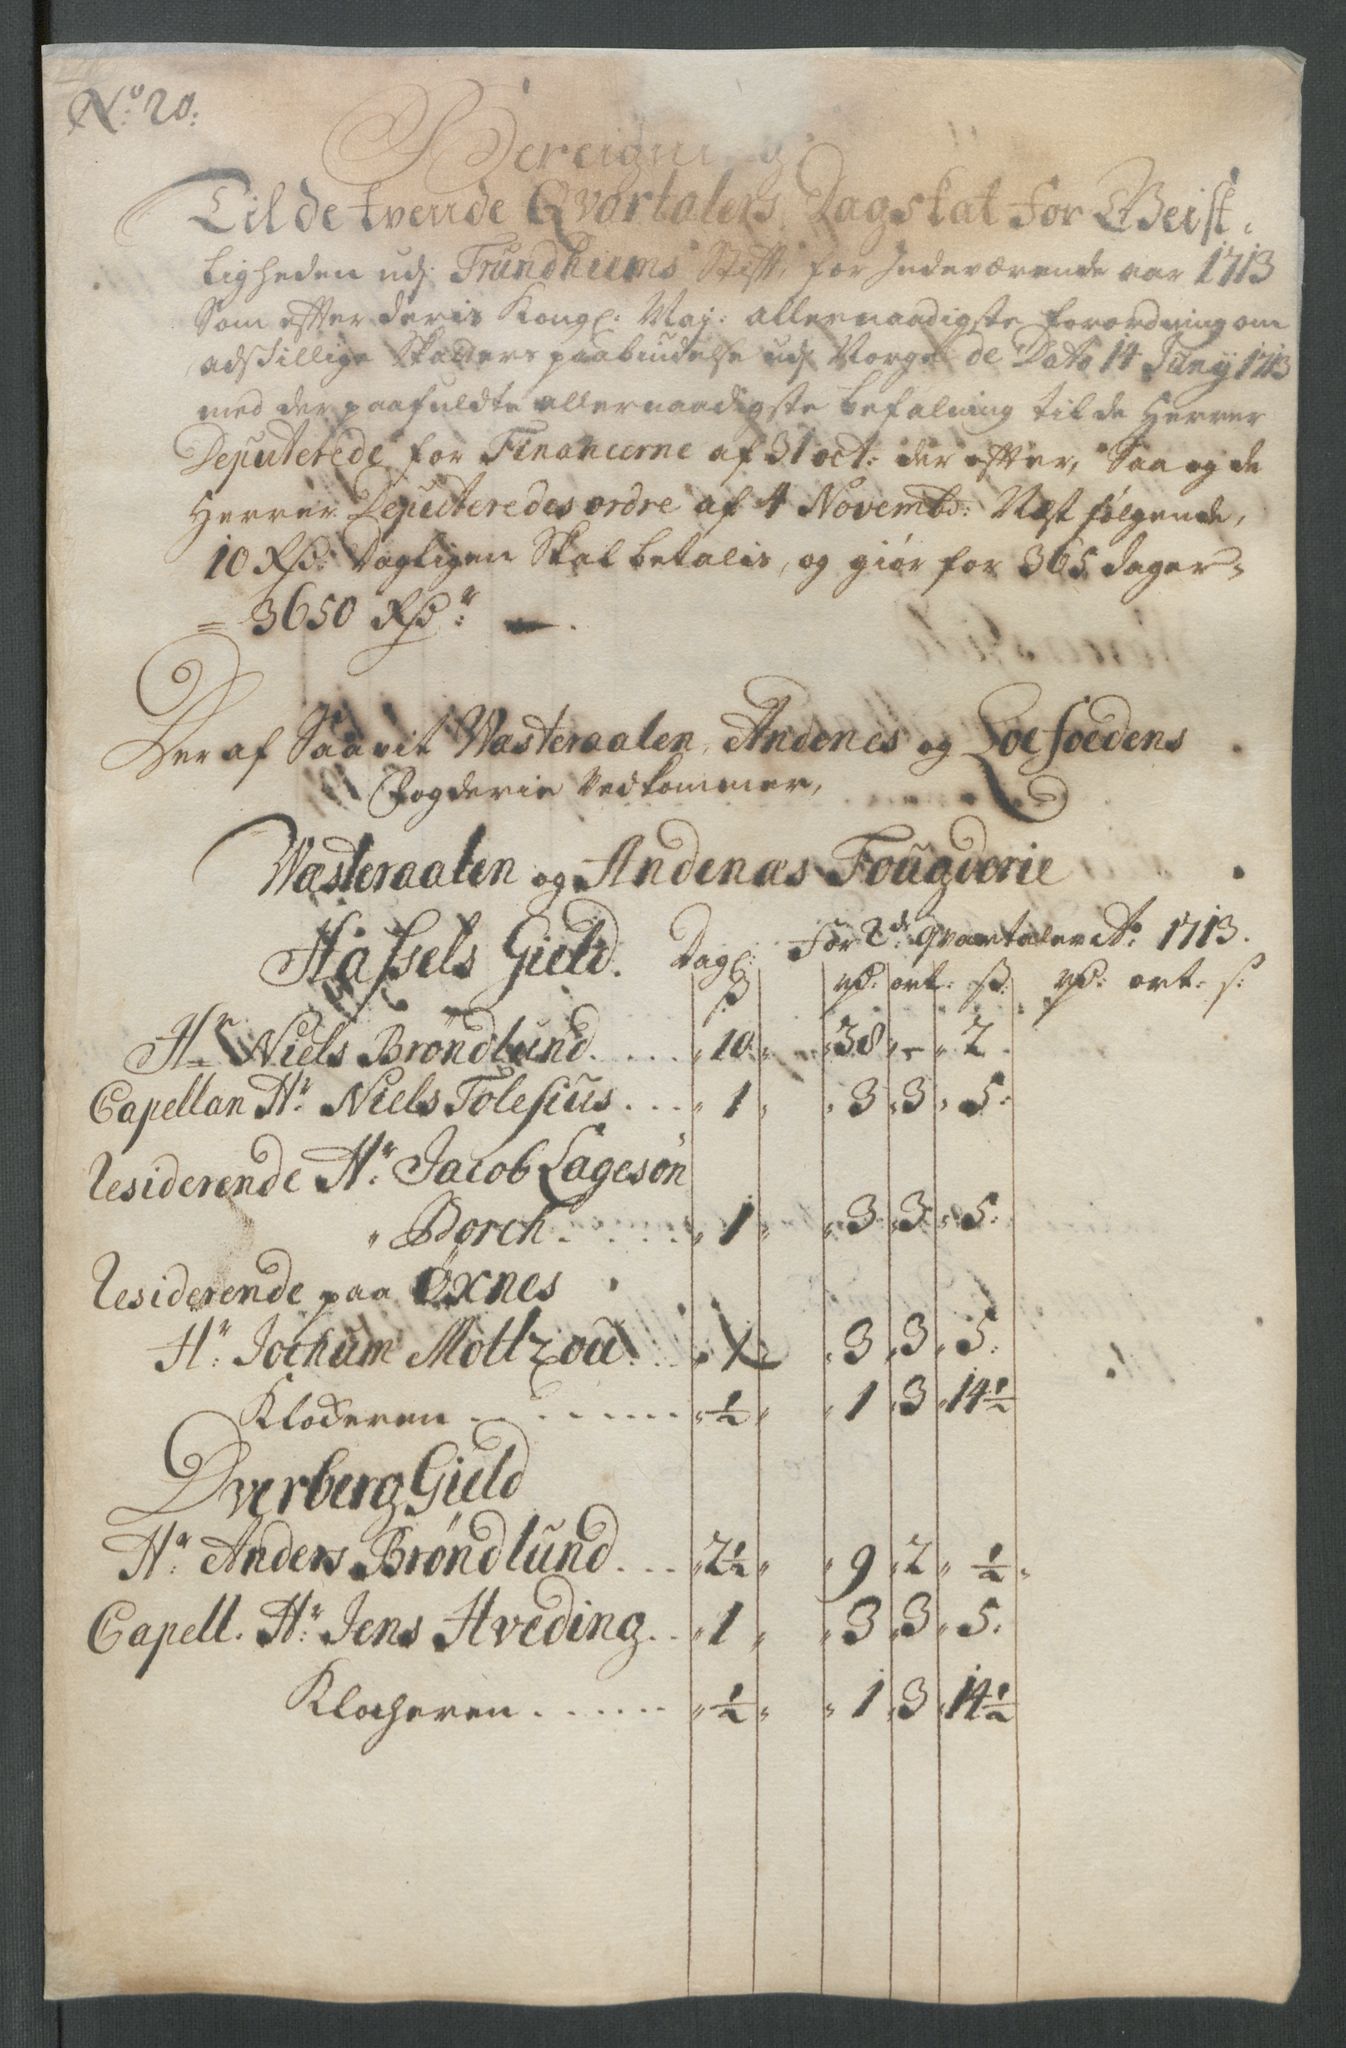 No 20:
Bereigning
Til de tvende Qvartalers Dagskat for Geist-
ligheden udj Trundhiems Stift, for Indeværende aar 1713
Som efter deris Kongl: Maj: allernaadigste forordning om
adskillige Skatters paabudelse udj Norge de Dato 14 Juny 1713
med der paafuldte allernaadigste befalning til de Herrer
Deputerede for Financerne af 31 oct: der effter, Saa og de
Herrer Deputeredes ordre af 4 Novembr: Næst følgende,
10 Rd: Dagligen Skal betalis, og giør for 365 dager =
= 3650 Rdr: —.
Der af Saavit Wasteraalen, Andenes og Loefoedens
Fogderie Vedkommer,
Wasteraalen og Andenæs Fougderie
Hassels Gield. Dagl: For 2de qvartaler Ao 1713.
ß rd: ort: ß: rd: ort: s:
Hr Niels Bröndlund . . . . 10 38 - 2
Capellan Hr: Niels Tolesius . . . 1 3 3 5.
Residerende Hr: Jacob Lagesön
Borch . . . . . 1 3 3 5.
Residerende paa Öxnes
Hr: Jochum Moltzou . . 1 3 3 5.
Klocheren . . . . . . . ½ 1 3 14½
Dverberg Gield
Hr: Anders Bröndlund . . . 2½ 9 2 ½
Capell. Hr: Jens Hveding . . 1 3 3 5.
Klocheren . . . . . . ½ 1 3 14½